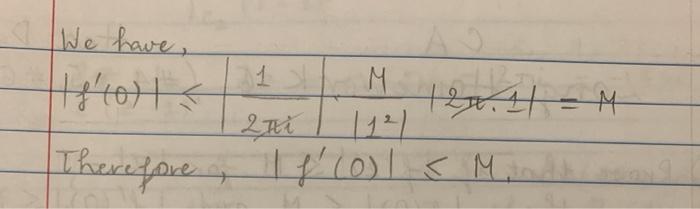 We have,
|f'(0)| ≤ |1/2πi| · M/|1²| |2π.1| = M
Therefore, |f'(0)| ≤ M.